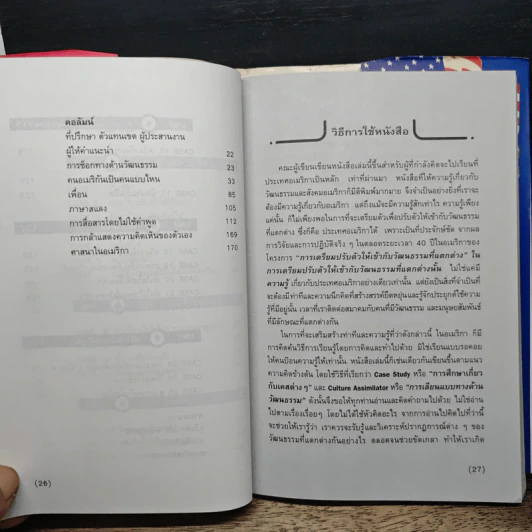 คอลัมน์
ที่ปรึกษา ตัวแทนเขต ผู้ประสานงาน
ผู้ให้คำแนะนำ 22
การช็อกทางด้านวัฒนธรรม 23
คนอเมริกันเป็นคนแบบไหน 33
เพื่อน 85
ภาษาสแลง 105
การสื่อสารโดยไม่ใช้คำพูด 112
การกล้าแสดงความคิดเห็นของตัวเอง 169
ศาสนาในอเมริกา 170
(26)
วิธีการใช้หนังสือ
คณะผู้เขียนเขียนหนังสือเล่มนี้ขึ้นสำหรับผู้ที่กำลังคิดจะไปเรียนที่
ประเทศอเมริกาเป็นหลัก เท่าที่ผ่านมา หนังสือที่ให้ความรู้เกี่ยวกับ
วัฒนธรรมและสังคมอเมริกาก็มีตีพิมพ์มากมาย จึงจำเป็นอย่างยิ่งที่เราจะ
ต้องมีความรู้เกี่ยวกับอเมริกา แต่ถึงแม้จะมีความรู้สักเท่าไร ความรู้เพียง
แค่นั้น ก็ไม่เพียงพอในการที่จะเตรียมตัวเพื่อปรับตัวให้เข้ากับวัฒนธรรม
ที่แตกต่าง ซึ่งก็คือ ประเทศอเมริกาได้ เพราะเป็นที่ประจักษ์ชัด จากผล
การวิจัยและการปฏิบัติจริง ๆ ในตลอดระยะเวลา 40 ปีในอเมริกาของ
โครงการ "การเตรียมปรับตัวให้เข้ากับวัฒนธรรมที่แตกต่าง" ใน
การเตรียมปรับตัวให้เข้ากับวัฒนธรรมที่แตกต่างนั้น ไม่ใช่แค่มี
ความรู้ เกี่ยวกับประเทศอเมริกาอย่างเดียวเท่านั้น แต่ยังเป็นสิ่งที่จำเป็นที่
จะต้องมีท่าทีและความนึกคิดที่สร้างสรรค์ยืดหยุ่นและรู้จักประยุกต์ใช้ความ
รู้ที่มีอยู่นั้น เวลาที่เราติดต่อสมาคมกับคนที่มีวัฒนธรรม และมนุษยสัมพันธ์
ที่มีลักษณะที่แตกต่างกัน
ในการที่จะเสริมสร้างท่าทีและความรู้ที่ว่าดังกล่าวนี้ ในอเมริกา ก็มี
การคิดค้นวิธีการเรียนรู้โดยการคิดและทำไปด้วย มิใช่เรียนแบบรอคอย
ให้คนป้อนความรู้ให้เท่านั้น หนังสือเล่มนี้ก็เช่นเดียวกันเขียนขึ้นตามแนว
ความคิดข้างต้น โดยใช้วิธีที่เรียกว่า Case Study หรือ "การศึกษาเกี่ยว
กับเคสต่าง ๆ" และ Culture Assimilator หรือ "การเลียนแบบทางด้าน
วัฒนธรรม" ดังนั้นจึงขอให้ทุกท่านอ่านและคิดคำถามไปด้วย ไม่ใช่อ่าน
ไปตามเรื่องเรื่อยๆ โดยไม่ได้ใช้หัวคิดอะไร จากการอ่านไปคิดไปที่ว่านี้
จะช่วยให้เรารู้ว่า เราควรจะรับรู้และวิเคราะห์ปรากฏการณ์ต่าง ๆ ของ
วัฒนธรรมที่แตกต่างกันอย่างไร ตลอดจนช่วยขัดเกลา ทำให้เราเกิด
(27)